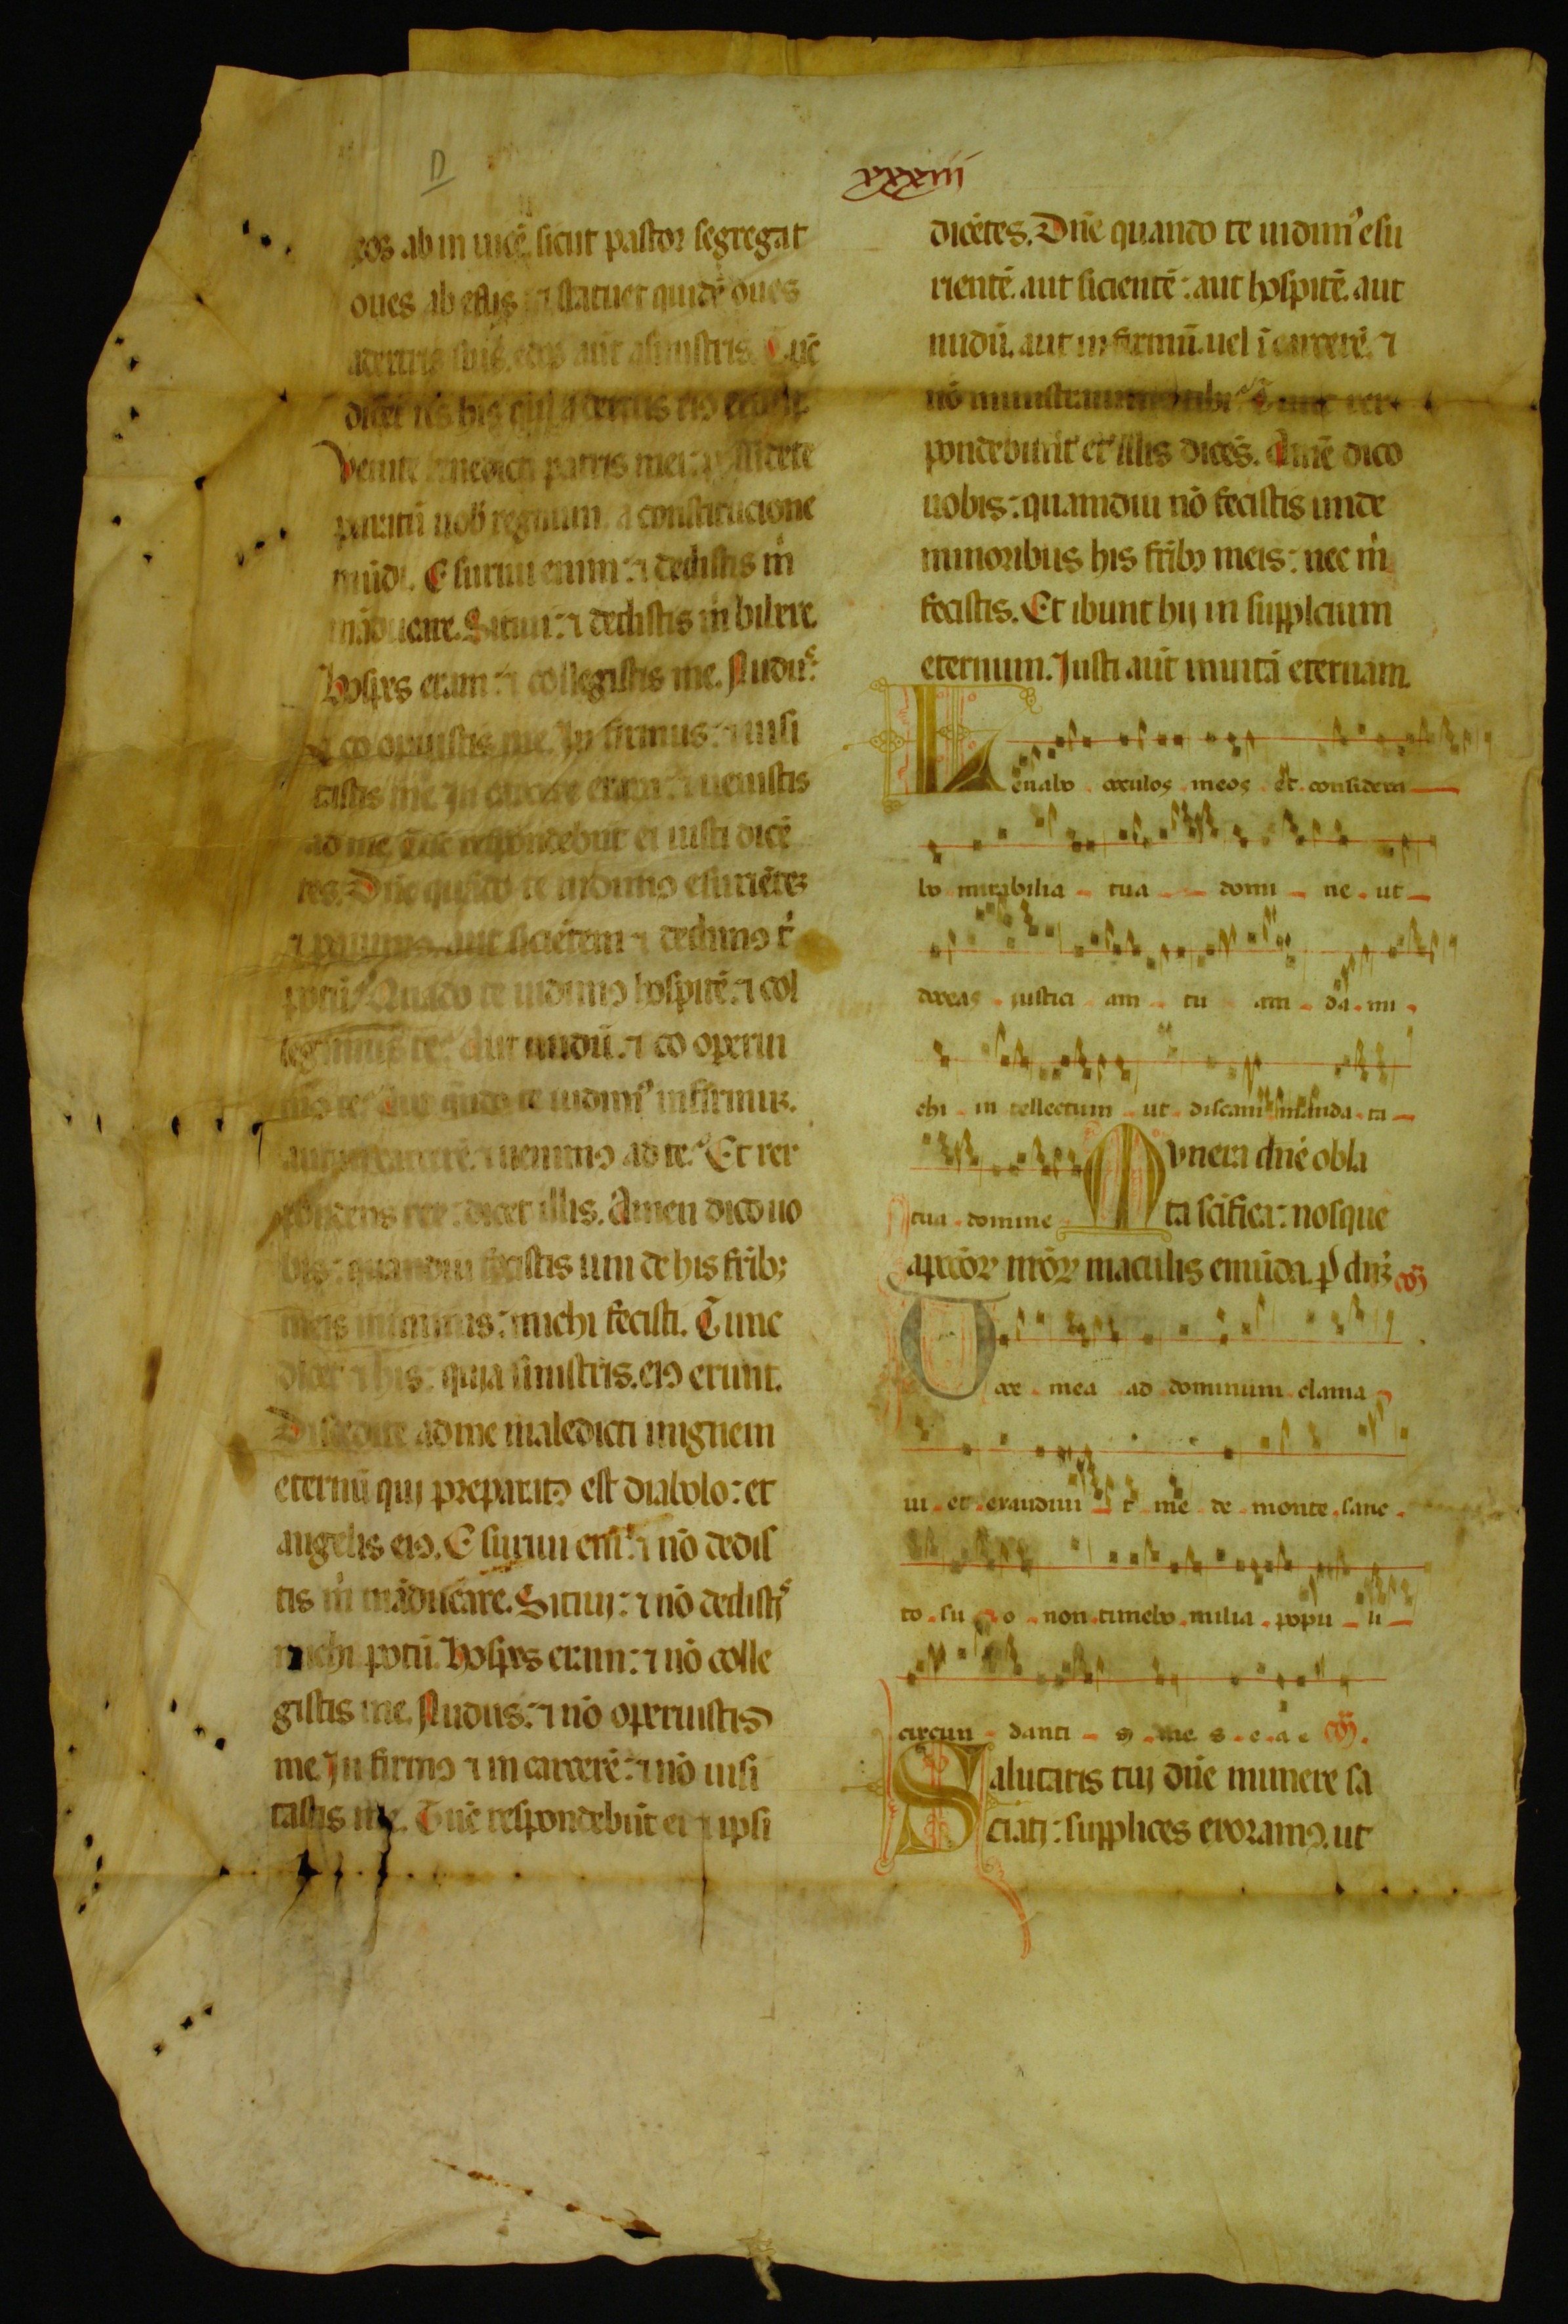 D
xxxiiij
eos ab in uicē sicut pastor segregat
oues ab edis ⁊ statuet quidē oues
adextris suis edos aūt asinistris. Tūc
dicet rex his qui a dextris eiꝰ erunt.
Venite benedicti patris mei: possidete
paratū uob̄ regnum a constitucione
mūdi. Esuriui enim: ⁊ dedistis m̄
māducare. Sitiui: ⁊ dedistis m̄ bibere.
Hospes eram: ⁊ collegistis me. Nudus:
⁊ co operuistis me. In firmus: ⁊ uisi
tastis me. In carcere eram: ⁊ uenistis
ad me. Tūc respondebūt ei iusti dicē
tes. Dn̄e quādo te uidimꝰ esuriētē
⁊ pauimꝰ. aut sicientem ⁊ dedimꝰ t̄
potū. Quādo te uidimꝰ hospitē: ⁊ col
legimus te. Aut nudū: ⁊ co operui
mꝰ te. Aut qn̄do te uidimꝰ infirmuꝫ.
aut in carcere. ⁊ uenimꝰ ad te. Et res
pondens rex: dicet illis. Amen dico uo
bis: quamdiu fecistis uni de his fr̄ibꝫ
meis minimis: michi fecisti. Tunc
dicet ⁊ his: qui a sinistris. eiꝰ erunt.
Discedite ad me maledicti inignem
eternū qui preparatꝰ est diabolo: et
angelis eiꝰ. Esuriui eni: ⁊ nō dedis
tis m̄ māducare. Sitiui: ⁊ nō dedistis
michi potū. Hospes eram: ⁊ nō colle
gistis me. Nudus: ⁊ nō operuistis
me. In firmꝰ ⁊ in carcerē: ⁊ nō uisi
tastis me. Tūc respondebūt ei ⁊ ipsi
dicētes. Dn̄e quando te uidimꝰ esu
rientē. aut sicientē: aut hospitē. aut
nudū. aut in firmū. uel ī carcerē. ⁊
nō ministrauimꝰ tibi. Tunc res
pondebit illis dicēs. Amē dico
uobis: quamdiu nō fecistis unide
minoribus his fr̄ibꝰ meis: nec m̄
fecistis. Et ibunt hij in supplicium
eternum. Iusti aūt inuitā eternam.
Leuabo oculos meos et considera
bo mirabilia tua domi ne ut
doceas iustici am tu am da mi
chi in tellectum ut discam manda ta
tua domine
Munera dn̄e obla
ta sc̄ifica: nosque
apccōꝝ nrōꝝ maculis emūda. ꝑ dn̄ꝫ cō
Voce mea ad dominum clama
ui et exaudiui t me de monte sanc
to su o non timebo milia popu li
circun danti s me s e a e cō.
Salutaris tuj dn̄e munere sa
ciatj: supplices exoramꝰ. ut